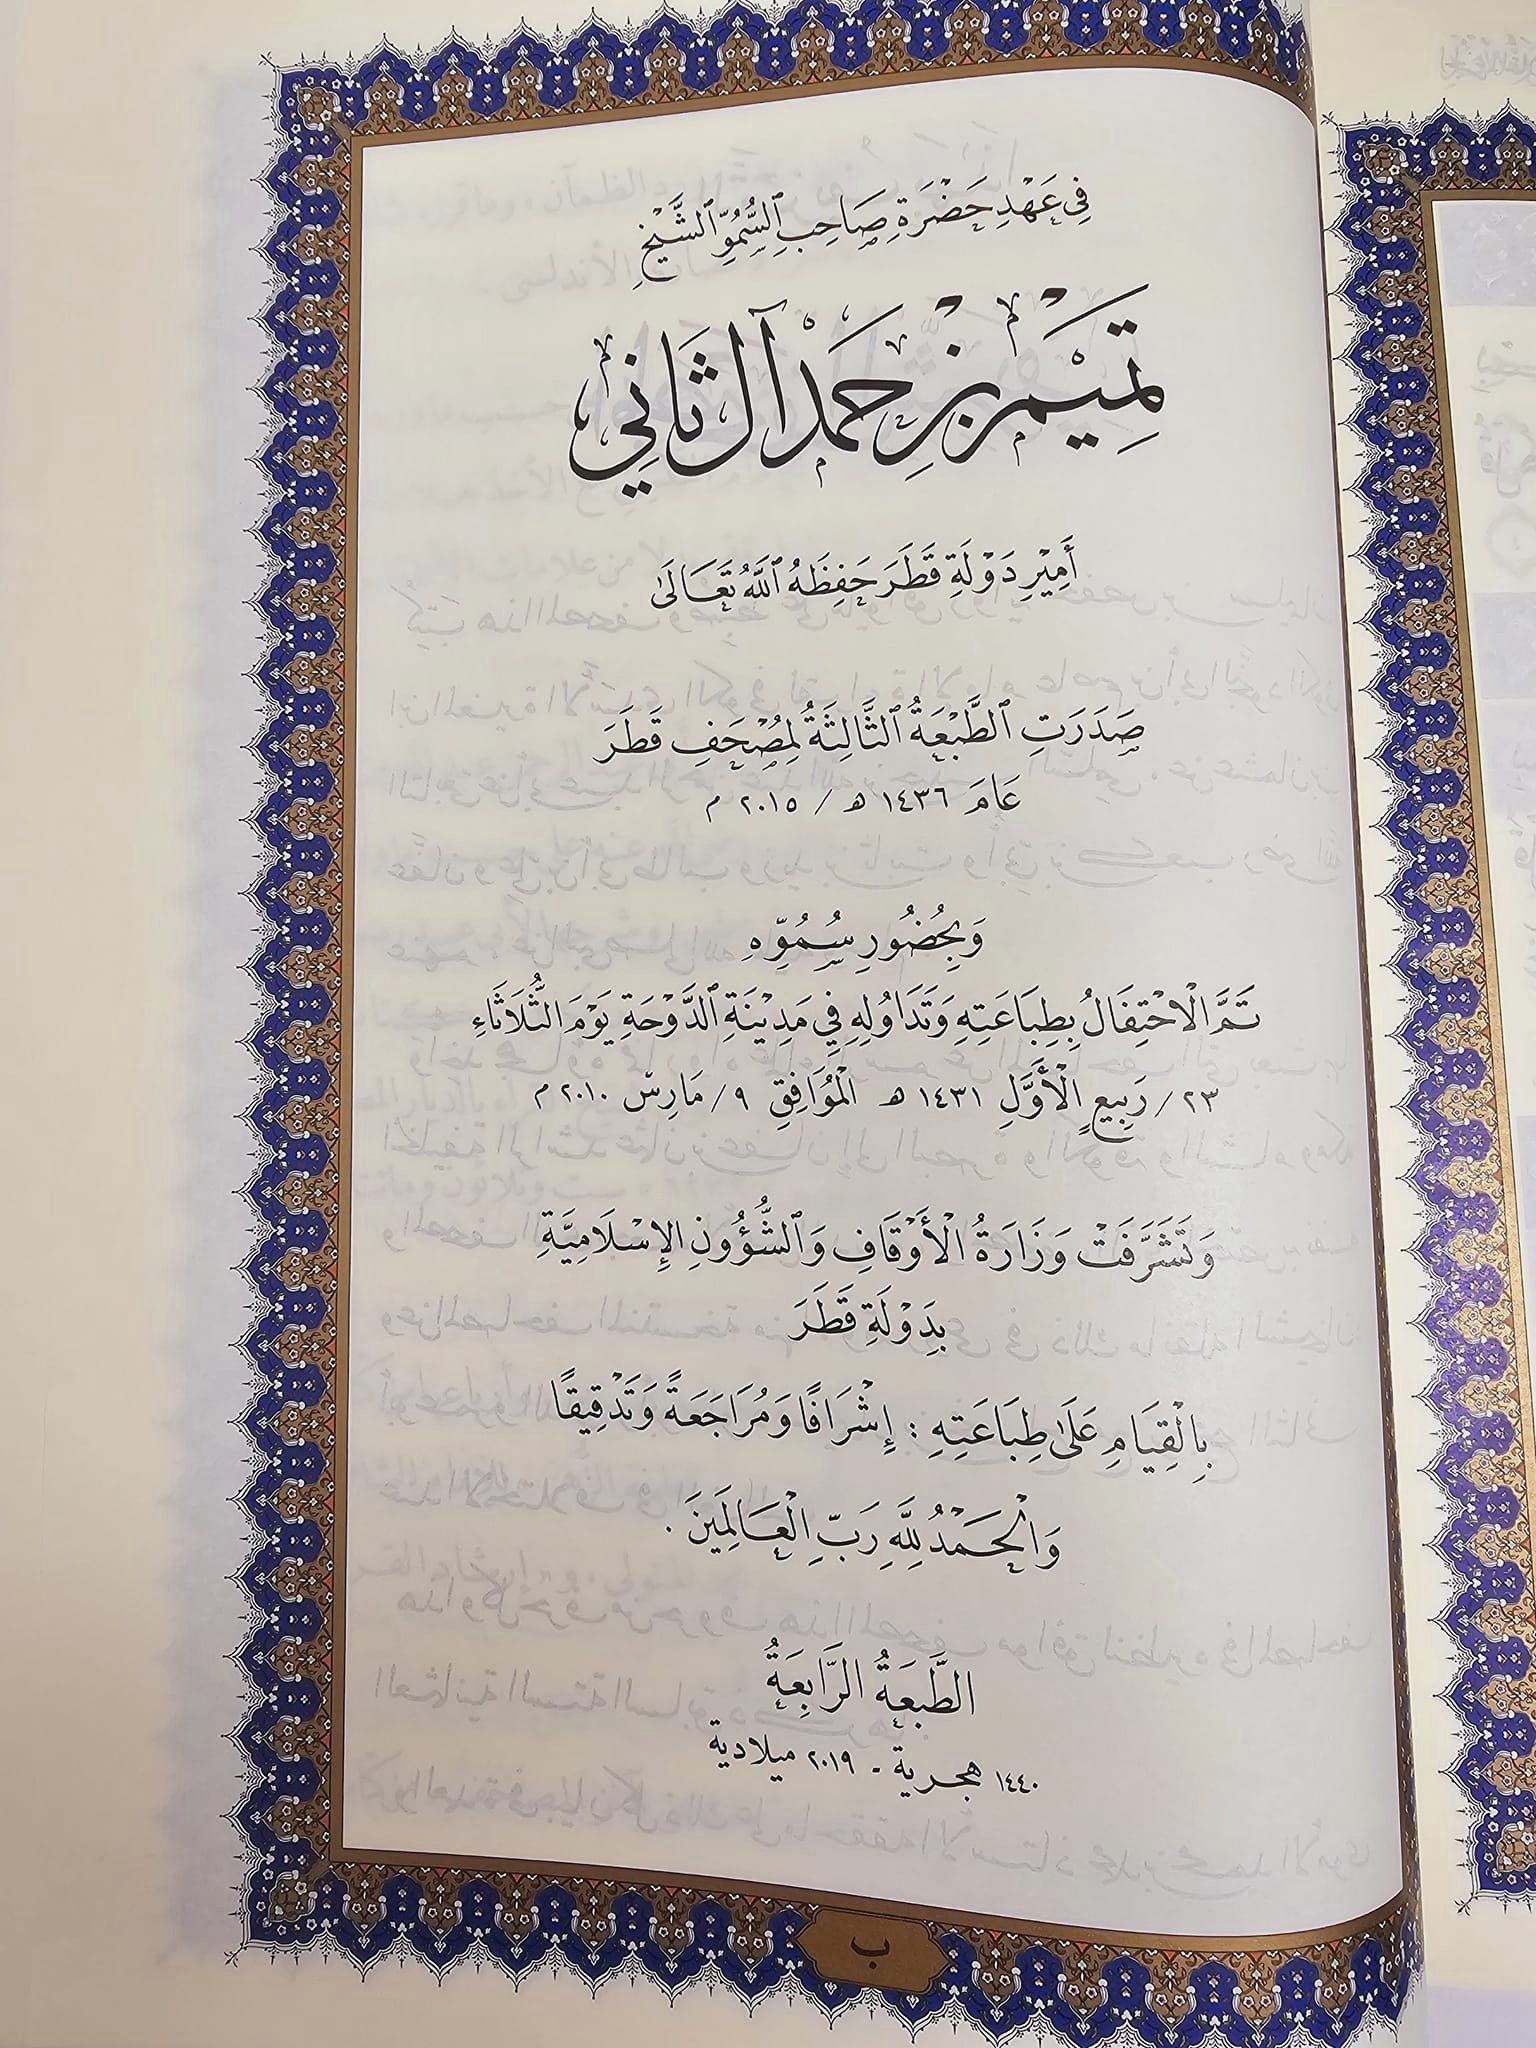 فِي عَهْدِ حَضْرَةِ صَاحِبِ ٱلسُّمُوِّ ٱلشَّيْخِ
تَمِيْم بْنِ حَمَدْ آل ثَانِي
أَمِيْرِ دَوْلَةِ قَطَرَ حَفِظَهُ ٱللَّهُ تَعَالَىٰ
صَدَرَتِ ٱلطَّبْعَةُ ٱلثَّالِثَةُ لِمُصْحَفِ قَطَرَ
عَامَ ١٤٣٦ هـ / ٢٠١٥ م
وَبِحُضُورِ سُمُوِّهِ
تَمَّ الْاحْتِفَالُ بِطِبَاعَتِهِ وَتَدَاوُلِهِ فِي مَدِيْنَةِ ٱلدَّوْحَةِ يَوْمَ الثُّلَاثَاءِ
٢٣ / رَبِيعٍ الْأَوَّلِ ١٤٣١ هـ الْمُوَافِقِ ٩ / مَارِسْ ٢٠١٠ م
وَتَشَرَّفَتْ وَزَارَةُ الْأَوْقَافِ وَٱلشُّؤُونِ الإِسْلَامِيَّةِ
بِدَوْلَةِ قَطَرَ
بِالْقِيَامِ عَلَىٰ طِبَاعَتِهِ : إِشْرَافًا وَمُرَاجَعَةً وَتَدْقِيقًا
وَالْحَمْدُ لِلَّهِ رَبِّ الْعَالَمِينَ .
الطَّبعَةُ الرَّابِعَةُ
١٤٤٠ هجرية - ٢٠١٩ ميلادية
ب